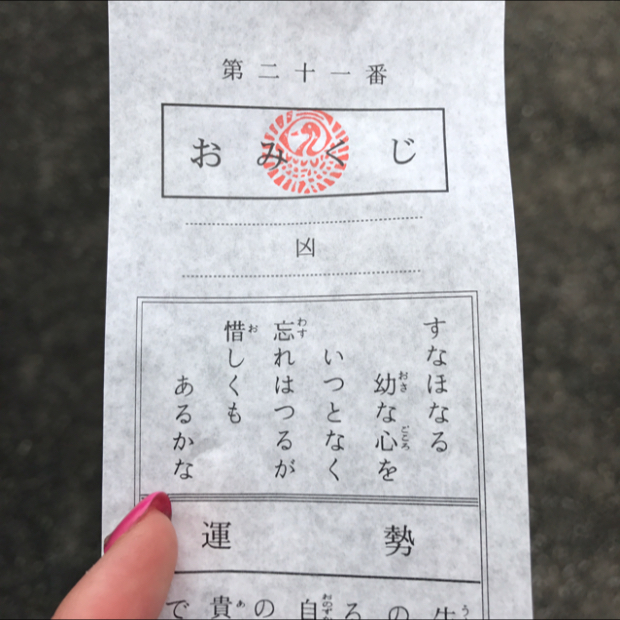 第二十一番
おみくじ
凶
すなほなる
幼な心を
いつとなく
忘れはつるが
惜しくも
あるかな
運勢
の
る
自
の
貴
で